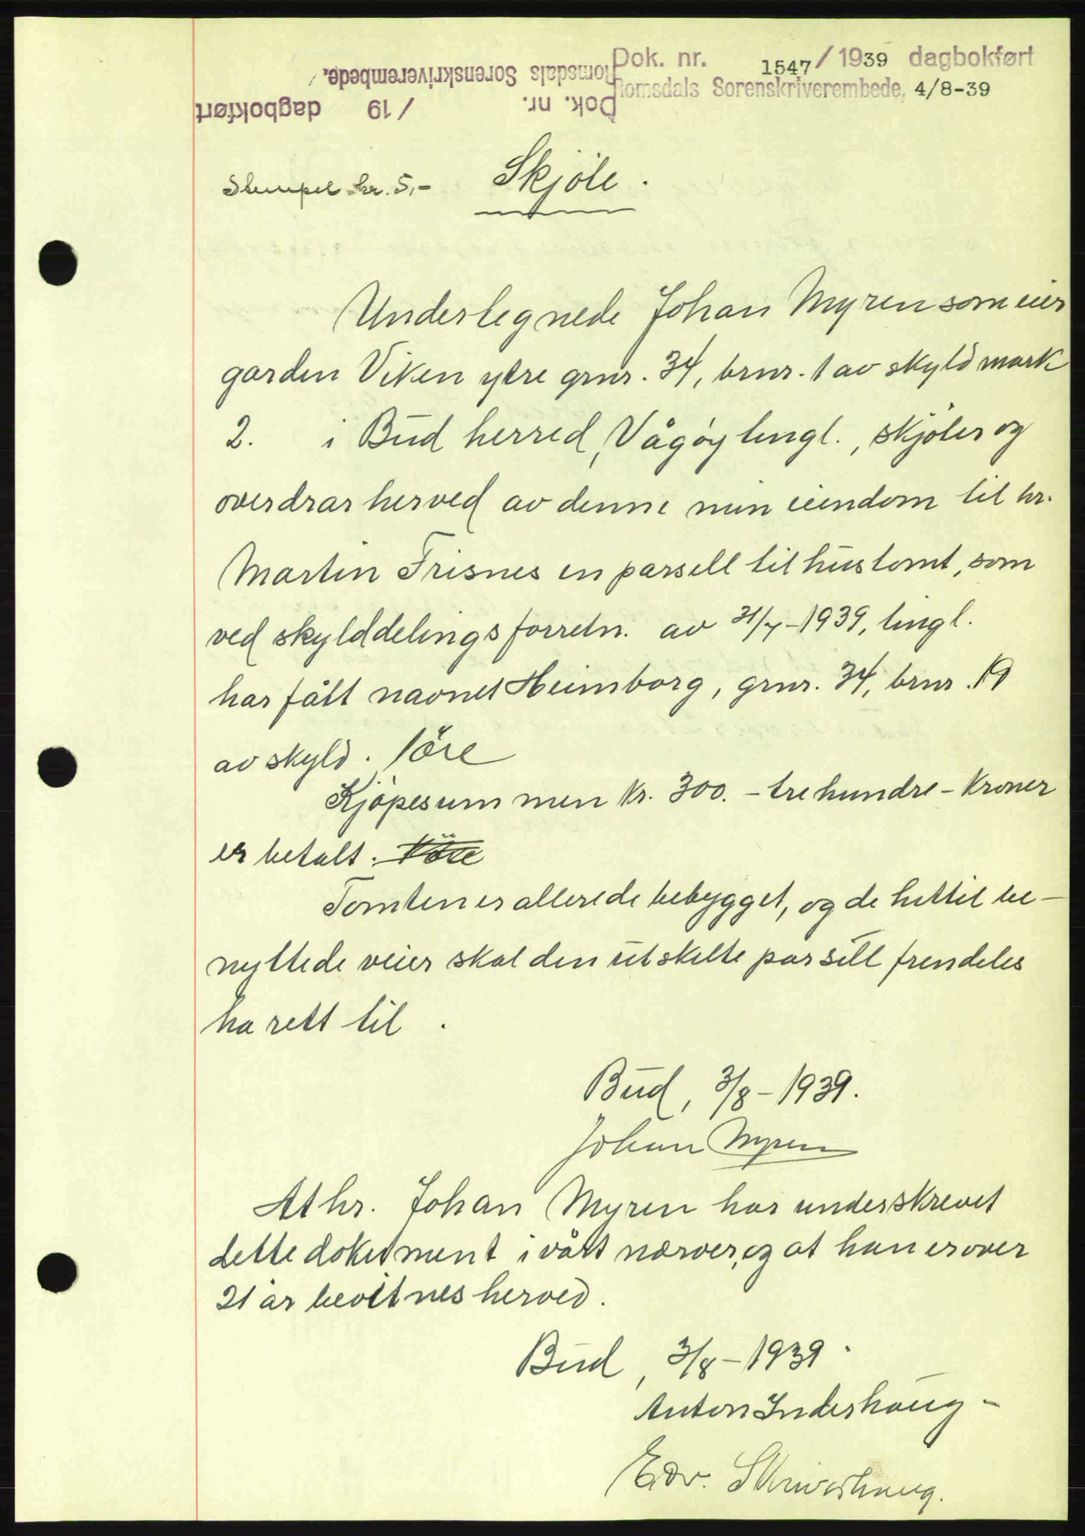 Dok. nr. 1547/1939 dagbokført
Romsdals Sorenskriverembede, 4/8-39
Dok. nr. /19 dagbokført
Romsdals Sorenskriverembede,
Stempel kr. 5,-
Skjöte.
Underlegnede Johan Myren som eier
garden Viken ytre grnr. 34, brnr. 1 av skyld mark
2. i Bud herred, Vågøy tingl., skjöter og
overdrar herved av denne min eiendom til hr.
Martin Frisnes en parsell til hustomt, som
ved skylddelingsforretn. av 31/7-1939, tingl.
har fått navnet Heimborg, grnr. 34, brnr. 19
av skyld. 1 öre
Kjöpesummen kr. 300. - trehundre - kroner
er betalt. 1 öre
Tomten er allerede bebygget, og de hittil be-
nyttede veier skal den utskilte parsell fremdeles
ha rett til.
Bud, 3/8-1939.
Johan Myren
At hr. Johan Myren har underskrevet
dette dokument i vårt nærver, og at han er over
21 år bevitnes herved.
Bud, 3/8-1939.
Anton Inderhaug-
Edv. Skriverhaug.